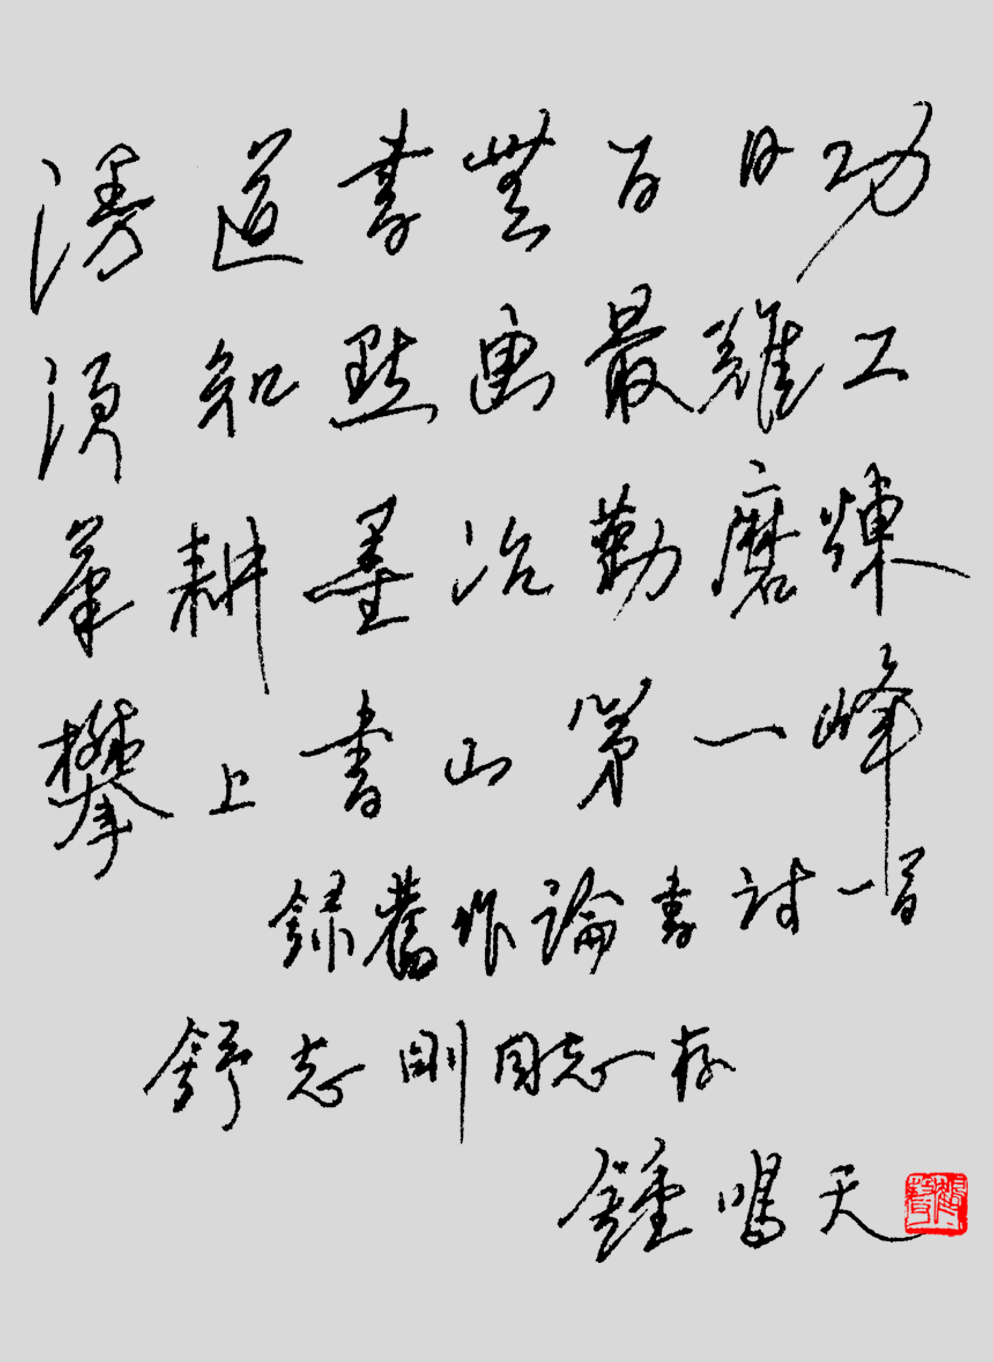 漫道書無百日功
須知點畫最難工
筆耕墨冶勤磨煉
攀上書山第一峰
録舊作論書詩一首
舒志剛同志存
鍾鳴天